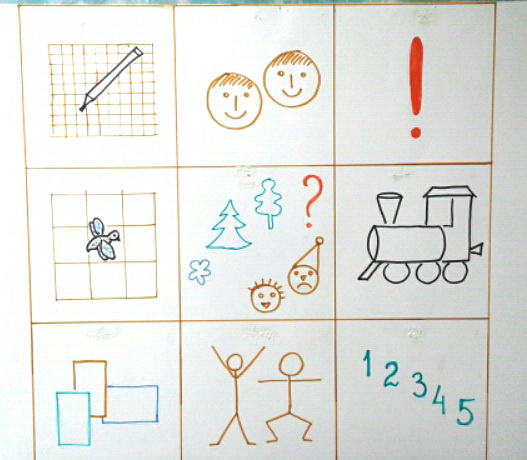 !
?
1 2 3 4 5